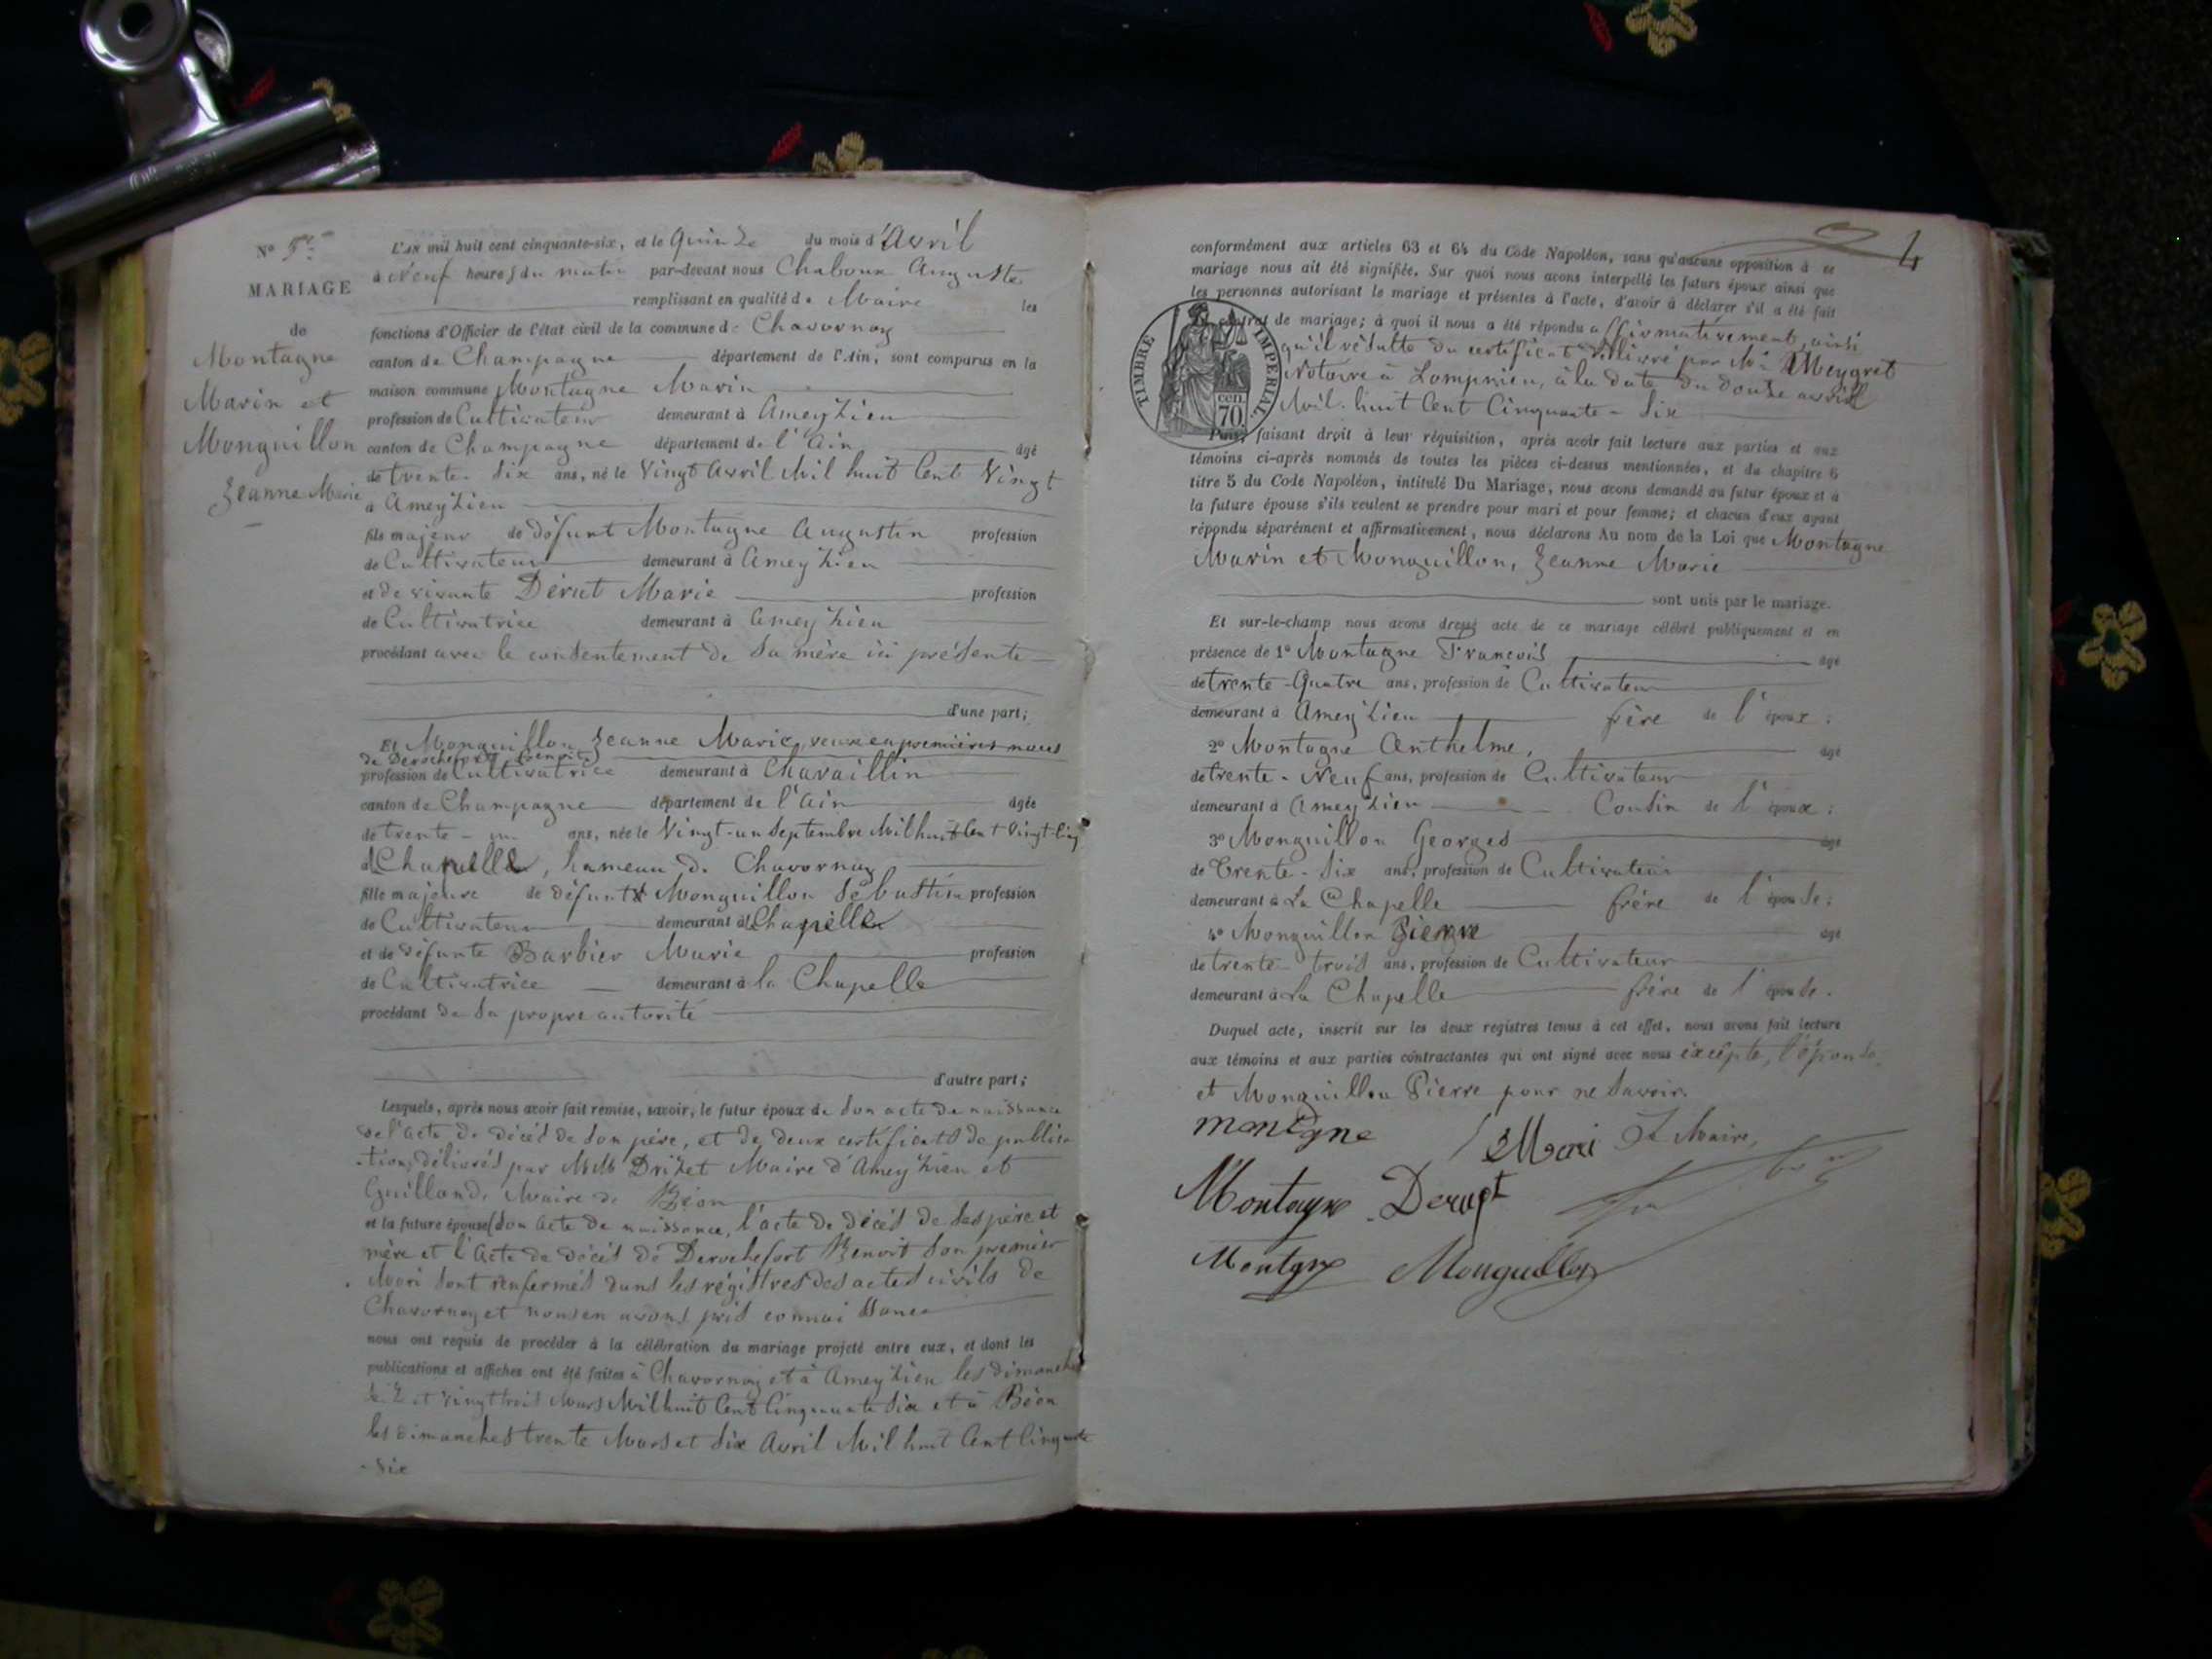 N° 5e
MARIAGE
de
Montagne
Marin et
Monguillon
Jeanne Marie
L'AN mil huit cent cinquante-six, et le Quinze du mois d'Avril
à Neuf heures du matin par-devant nous Chaboux Auguste
remplissant en qualité de Maire les
fonctions d'Officier de l'état civil de la commune de Chavornay
canton de Champagne département de l'Ain, sont comparus en la
maison commune Montagne Marin
profession de Cultivateur demeurant à Ameyzieu
canton de Champagne département de l'Ain âgé
de trente-Six ans, né le Vingt Avril Mil huit Cent Vingt
à Ameyzieu
fils majeur de défunt Montagne Augustin profession
de Cultivateur demeurant à Ameyzieu
et de vivante Dérut Marie profession
de Cultivatrice demeurant à Ameyzieu
procédant avec le consentement de Sa mère ici présente
d'une part;
Et Monguillon Jeanne Marie, veuve en premières noces
de Derochefort Benoit
profession de Cultivatrice demeurant à Chavaillin
canton de Champagne département de l'Ain âgée
de trente-un ans, née le Vingt-un Septembre Mil huit Cent Vingt-Cinq
à Chapelle, hameau de Chavornay
fille majeure de défunt Monguillon Sébastien profession
de Cultivateur demeurant à Chapelle
et de défunte Barbier Marie profession
de Cultivatrice demeurant à la Chapelle
procédant de Sa propre autorité
d'autre part;
Lesquels, après nous avoir fait remise, savoir, le futur époux de Son acte de naissance
de l'acte de décès de Son père, et de deux certificats de publica
-tion, délivrés par MM Drizet Maire d'Ameyzieu et
Guilland, Maire de Béon
et la future épouse (Son acte de naissance, l'acte de décès de Ses père et
mère et l'Acte de décès de Derochefort Benoit Son premier
Mari Sont renfermés dans les régistres des actes civils de
Chavornay et nous en avons pris connaissance
nous ont requis de procéder à la célébration du mariage projeté entre eux, et dont les
publications et affiches ont été faites à Chavornay et à Ameyzieu les dimanches
Seize et vingt trois Mars Mil huit Cent Cinquante Six et à Béon
les dimanches trente Mars et Six Avril Mil huit Cent Cinquante
-Six
4
conformément aux articles 63 et 64 du Code Napoléon, sans qu'aucune opposition à ce
mariage nous ait été signifiée. Sur quoi nous avons interpellé les futurs époux ainsi que
les personnes autorisant le mariage et présentes à l'acte, d'avoir à déclarer s'il a été fait
contrat de mariage; à quoi il nous a été répondu affirmativement, ainsi
qu'il résulte du certificat délivré par Me Meygret
Notaire à Lompnieu, à la date du douze avril
Mil huit Cent Cinquante-Six
TIMBRE IMPÉRIAL
cen. 70.
Puis, faisant droit à leur réquisition, après avoir fait lecture aux parties et aux
témoins ci-après nommés de toutes les pièces ci-dessus mentionnées, et du chapitre 6
titre 5 du Code Napoléon, intitulé Du Mariage, nous avons demandé au futur époux et à
la future épouse s'ils veulent se prendre pour mari et pour femme; et chacun d'eux ayant
répondu séparément et affirmativement, nous déclarons Au nom de la Loi que Montagne
Marin et Monguillon, Jeanne Marie
sont unis par le mariage.
Et sur-le-champ nous avons dressé acte de ce mariage célébré publiquement et en
présence de 1° Montagne François âgé
de trente-Quatre ans, profession de Cultivateur
demeurant à Ameyzieu frère de l'époux;
2° Montagne Anthelme, âgé
de trente-Neuf ans, profession de Cultivateur
demeurant à Ameyzieu Cousin de l'époux;
3° Monguillon Georges âgé
de Trente-Six ans, profession de Cultivateur
demeurant à La Chapelle frère de l'épouse;
4° Monguillon Pierre âgé
de trente-trois ans, profession de Cultivateur
demeurant à La Chapelle frère de l'épouse.
Duquel acte, inscrit sur les deux registres tenus à cet effet, nous avons fait lecture
aux témoins et aux parties contractantes qui ont signé avec nous excepté, l'épouse
et Monguillon Pierre pour ne Savoir.
montgne Mari Le Maire,
Montagne Derupt
Montgne Monguillon